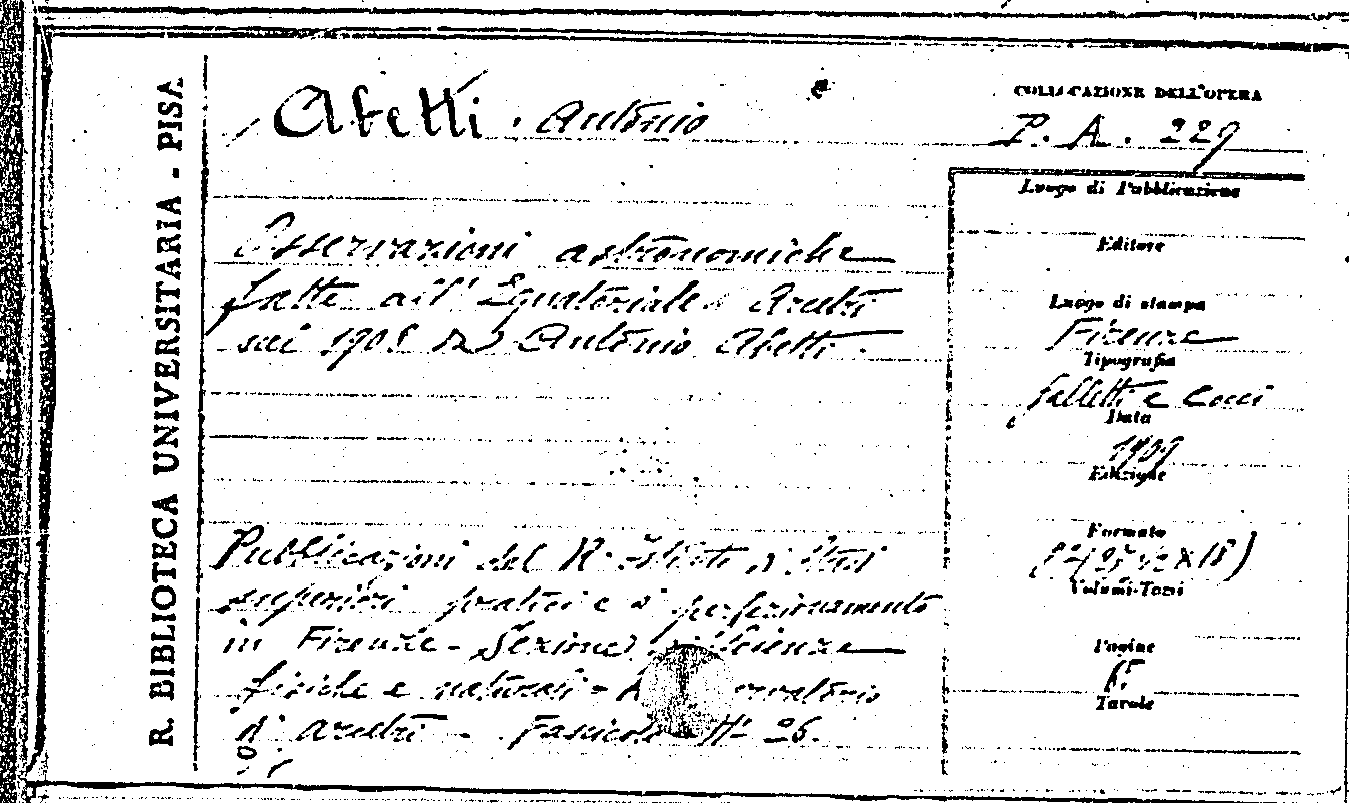 R. BIBLIOTECA UNIVERSITARIA - PISA
Abetti. Antonio
COLLOCAZIONE DELL'OPERA
P. A. 229
Osservazioni astronomiche
fatte all'Equatoriale d'Arcetri
nel 1908 da Antonio Abetti.
Pubblicazioni del R. Istituto di Studi
superiori pratici e di perfezionamento
in Firenze - Sezione di Scienze
fisiche e naturali - R. Osservatorio
di Arcetri - Fascicolo N° 26.
Luogo di Pubblicazione
Editore
Luogo di stampa
Firenze
Tipografia
Galletti e Cocci
Data
1909
Edizione
Formato
Volumi-Tomi
Pagine
Tavole